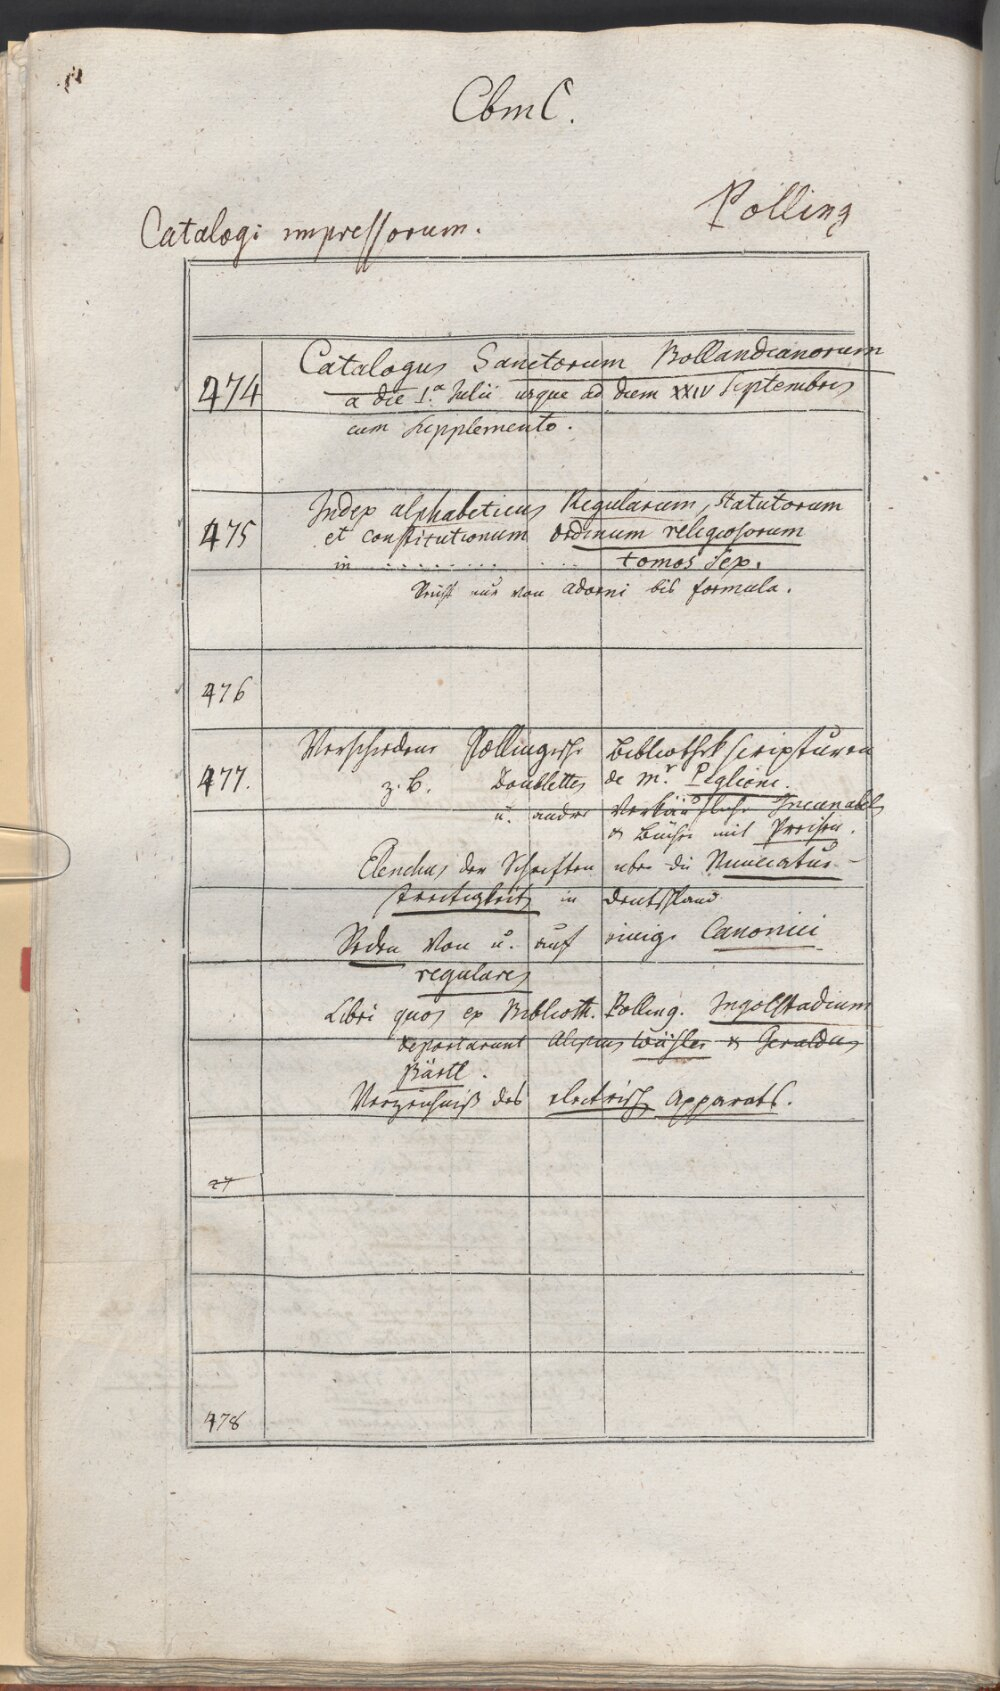 CbmC.
Polling
Catalogi impressorum.
474 Catalogus Sanctorum Bollandianorum
a die 1.a Julii usque ad diem XXIV Septembris
cum Supplemento.
475 Index alphabeticus Regularum, statutorum
et constitutionum ordinum religiosorum
in . . . . . . . . . . . tomos Sex.
Reicht nur von adorni bis formula.
476
477. Verschiedene Pollingische Bibliothekscripturen
z. B. Doublettes de Mr. Peglioni.
u. andre verkäufliche Incunabeln
& Bücher mit Preisen.
Elenchus der Schriften über die Nunciatur-
streitigkeiten in Deutschland
Reden von u. auf einige Canonici
regulares
Libri quos ex Biblioth. Polling. Ingolstadium
deportarunt Alipius & Geraldus
Bärtl.
Verzeichniß des electrisch Apparats.
27
478